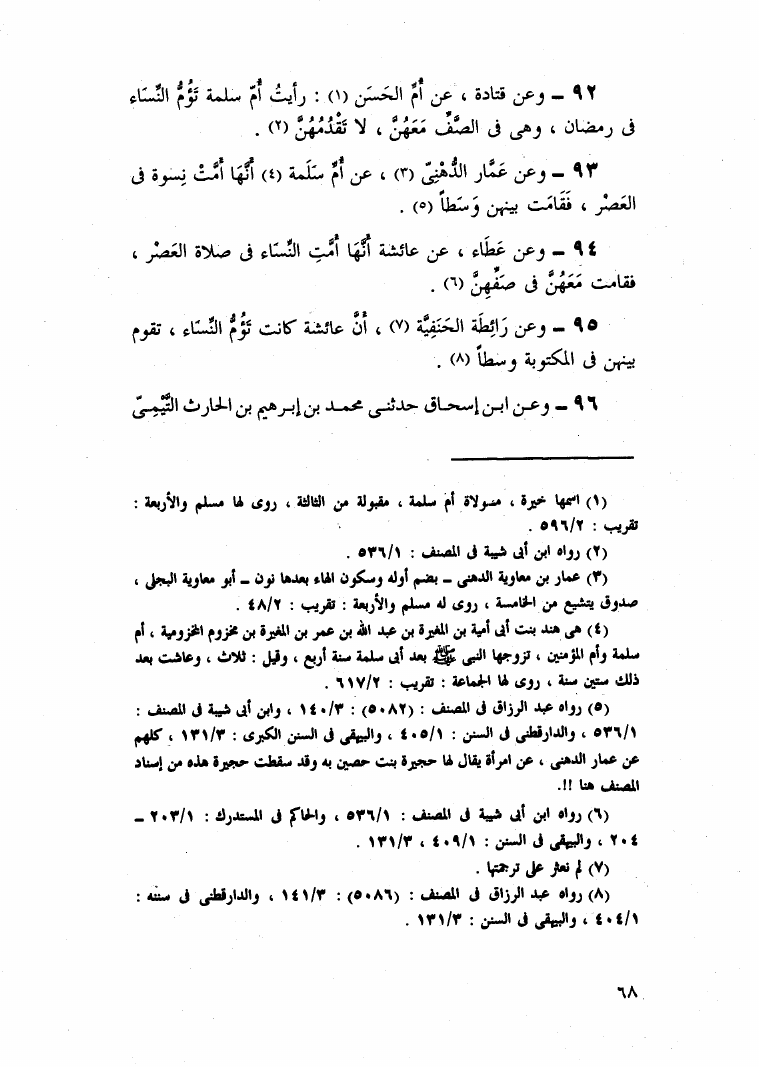 ٩٢ ــ وعن قتادة ، عن أُمِّ الحَسَن (١) : رأيتُ أُمّ سلمة تَؤُمُّ النِّسَاء
فى رمضان ، وهى فى الصَّفِّ مَعَهُنَّ ، لا تَقْدُمُهُنَّ (٢) .
٩٣ ــ وعن عَمَّار الدُّهْنِىّ (٣) ، عن أُمِّ سَلَمة (٤) أَنَّهَا أَمَّتْ نِسوة فى
العَصْر ، فَقَامَت بينهن وَسَطاً (٥) .
٩٤ ــ وعن عَطَاء ، عن عائشة أَنَّهَا أَمَّتِ النِّسَاء فى صلاة العَصْر ،
فقامت مَعَهُنَّ فى صَفِّهِنَّ (٦) .
٩٥ ــ وعن رَائِطَة الحَنَفِيَّة (٧) ، أَنَّ عائشة كانت تَؤُمُّ النِّسَاء ، تقوم
بينهن فى المكتوبة وسطاً (٨) .
٩٦ ــ وعن ابن إسحاق حدثنى محمد بن إبرهيم بن الحارث التَّيْمِىّ
(١) اسمها خيرة ، مولاة أم سلمة ، مقبولة من الثالثة ، روى لها مسلم والأربعة :
تقريب : ٥٩٦/٢ .
(٢) رواه ابن أبى شيبة فى المصنف : ٥٣٦/١ .
(٣) عمار بن معاوية الدهنى ــ بضم أوله وسكون الهاء بعدها نون ــ أبو معاوية البجلى ،
صدوق يتشيع من الخامسة ، روى له مسلم والأربعة : تقريب : ٤٨/٢ .
(٤) هى هند بنت أبى أمية بن المغيرة بن عبد الله بن عمر بن المغيرة بن مخزوم المخزومية ، أم
سلمة وأم المؤمنين ، تزوجها النبى ﷺ بعد أبى سلمة سنة أربع ، وقيل : ثلاث ، وعاشت بعد
ذلك ستين سنة ، روى لها الجماعة : تقريب : ٦١٧/٢ .
(٥) رواه عبد الرزاق فى المصنف : (٥٠٨٢) : ١٤٠/٣ ، وابن أبى شيبة فى المصنف :
٥٣٦/١ ، والدارقطنى فى السنن : ٤٠٥/١ ، والبيهقى فى السنن الكبرى : ١٣١/٣ ، كلهم
عن عمار الدهنى ، عن امرأة يقال لها حجيرة بنت حصين به وقد سقطت حجيرة هذه من إسناد
المصنف هنا !!.
(٦) رواه ابن أبى شيبة فى المصنف : ٥٣٦/١ ، والحاكم فى المستدرك : ٢٠٣/١ ــ
٢٠٤ ، والبيهقى فى السنن : ٤٠٩/١ ، ١٣١/٣ .
(٧) لم نعثر على ترجمتها .
(٨) رواه عبد الرزاق فى المصنف : (٥٠٨٦) : ١٤١/٣ ، والدارقطنى فى سننه :
٤٠٤/١ ، والبيهقى فى السنن : ١٣١/٣ .
٦٨